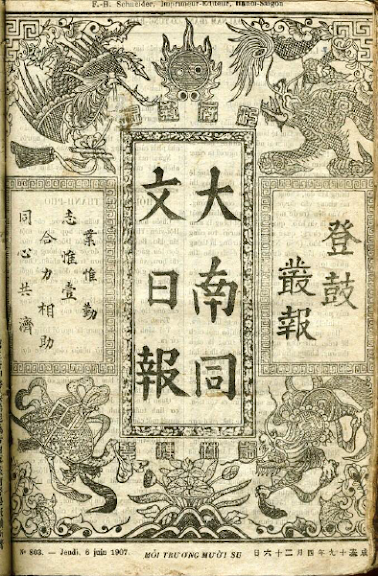 F.-H. Schneider, Imprimeur-Editeur, Hanoi-Saigon
登鼓
叢報
大南同
文日報
業惟勤
志惟壹
合力相助
同心共濟
Nº 803. — Jeudi, 6 juin 1907.
MỖI TRƯƠNG MƯỜI SU
成泰十九年四月二十六日